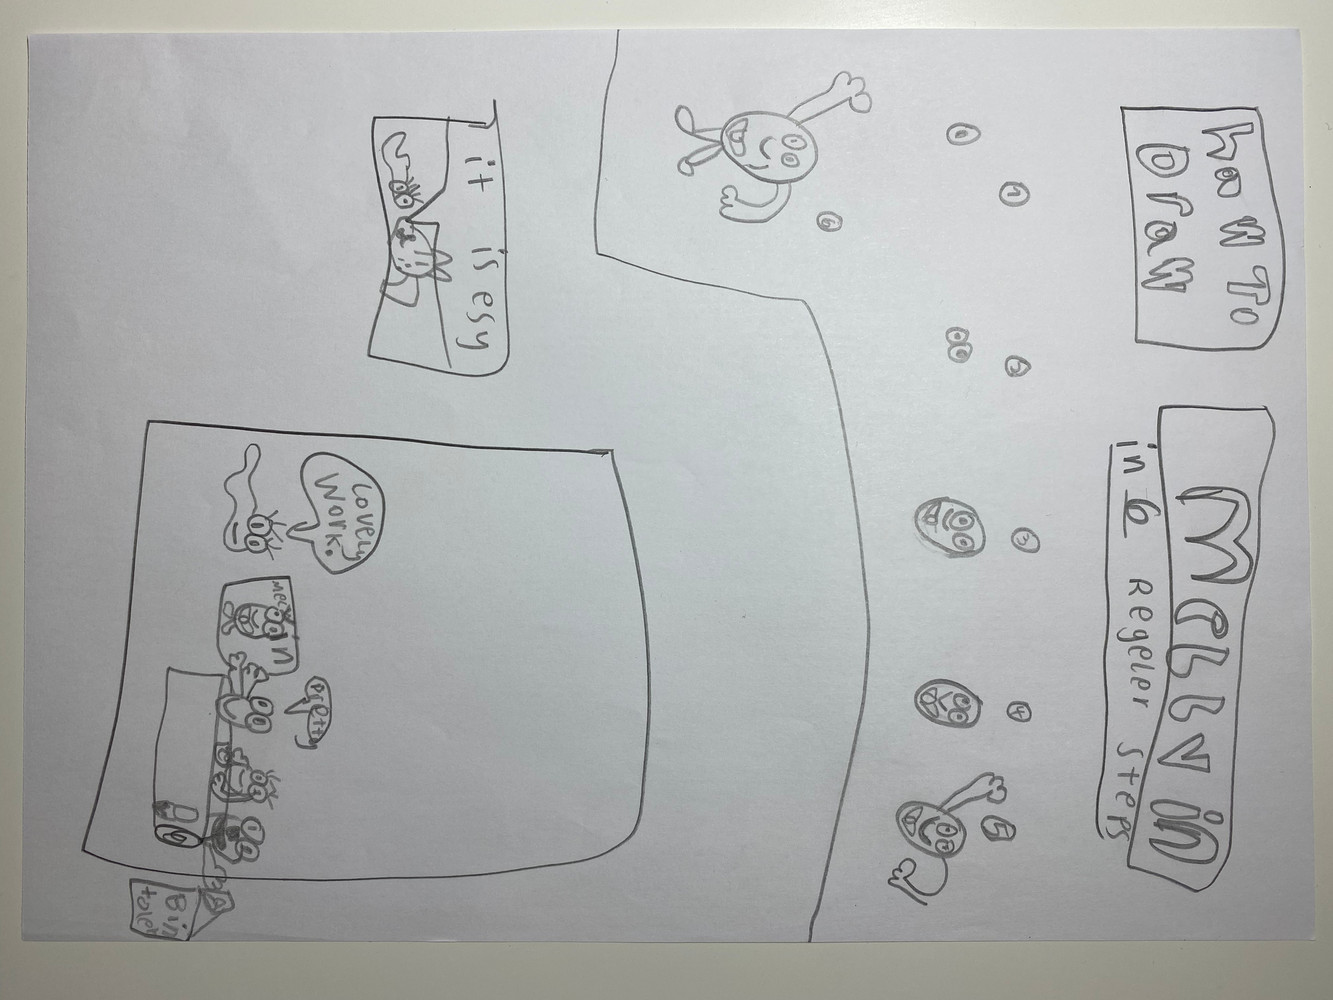 how To
Draw
Mellvin
in 6 Regeler steps
1
2
3
4
5
6
it is esy
Lovely
Work.
Mellvin
Pretty
Bin